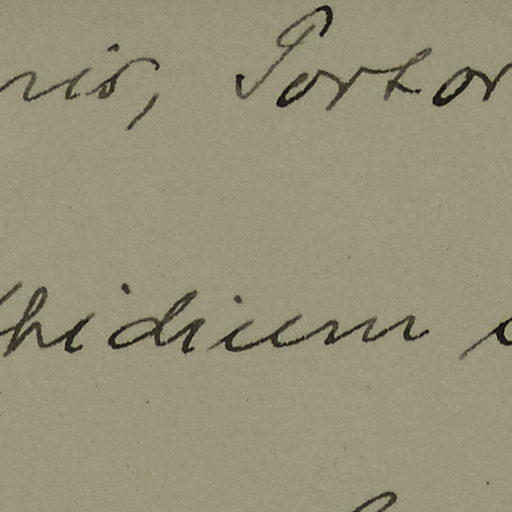 rio, Portor
hidium